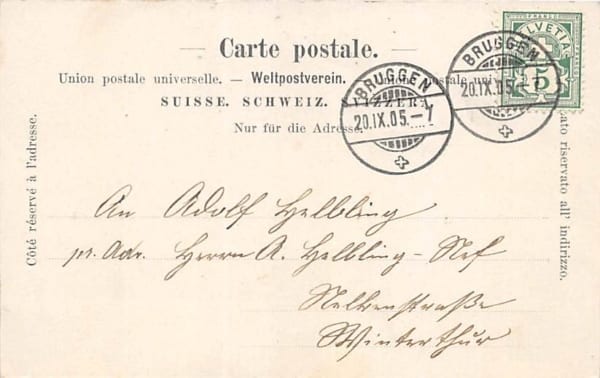 — Carte postale. —
Union postale universelle. — Weltpostverein. — Unione postale universale
SUISSE. SCHWEIZ. SVIZZERA.
Nur für die Adresse.
Côté réservé à l'adresse.
Lato riservato all' indirizzo.
FRANCO
HELVETIA
5
BRUGGEN
20.IX.05.–7
BRUGGEN
20.IX.05.–7
An Adolf Helbling
pr. Adr. Herrn A. Helbling-Nef
Nelkenstraße
Winterthur